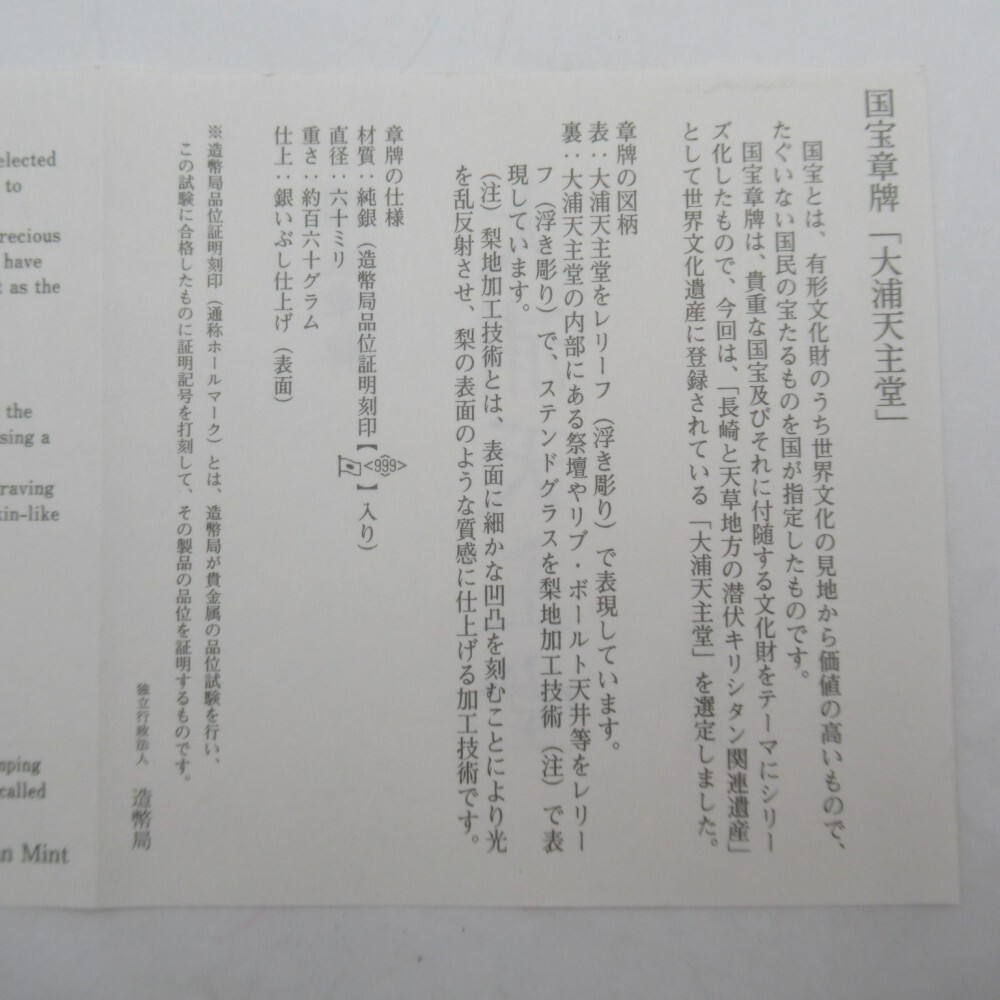 国宝章牌「大浦天主堂」
国宝とは、有形文化財のうち世界文化の見地から価値の高いもので、
たぐいない国民の宝たるものを国が指定したものです。
国宝章牌は、貴重な国宝及びそれに付随する文化財をテーマにシリー
ズ化したもので、今回は、「長崎と天草地方の潜伏キリシタン関連遺産」
として世界文化遺産に登録されている「大浦天主堂」を選定しました。
章牌の図柄
表：大浦天主堂をレリーフ（浮き彫り）で表現しています。
裏：大浦天主堂の内部にある祭壇やリブ・ボールト天井等をレリー
フ（浮き彫り）で、ステンドグラスを梨地加工技術（注）で表
現しています。
（注）梨地加工技術とは、表面に細かな凹凸を刻むことにより光
を乱反射させ、梨の表面のような質感に仕上げる加工技術です。
章牌の仕様
材質：純銀（造幣局品位証明刻印【<999>】入り）
直径：六十ミリ
重さ：約百六十グラム
仕上：銀いぶし仕上げ（表面）
※造幣局品位証明刻印（通称ホールマーク）とは、造幣局が貴金属の品位試験を行い、
この試験に合格したものに証明記号を打刻して、その製品の品位を証明するものです。
独立行政法人 造幣局
elected
to
recious
have
t as the
the
sing a
raving
kin-like
mping
called
n Mint